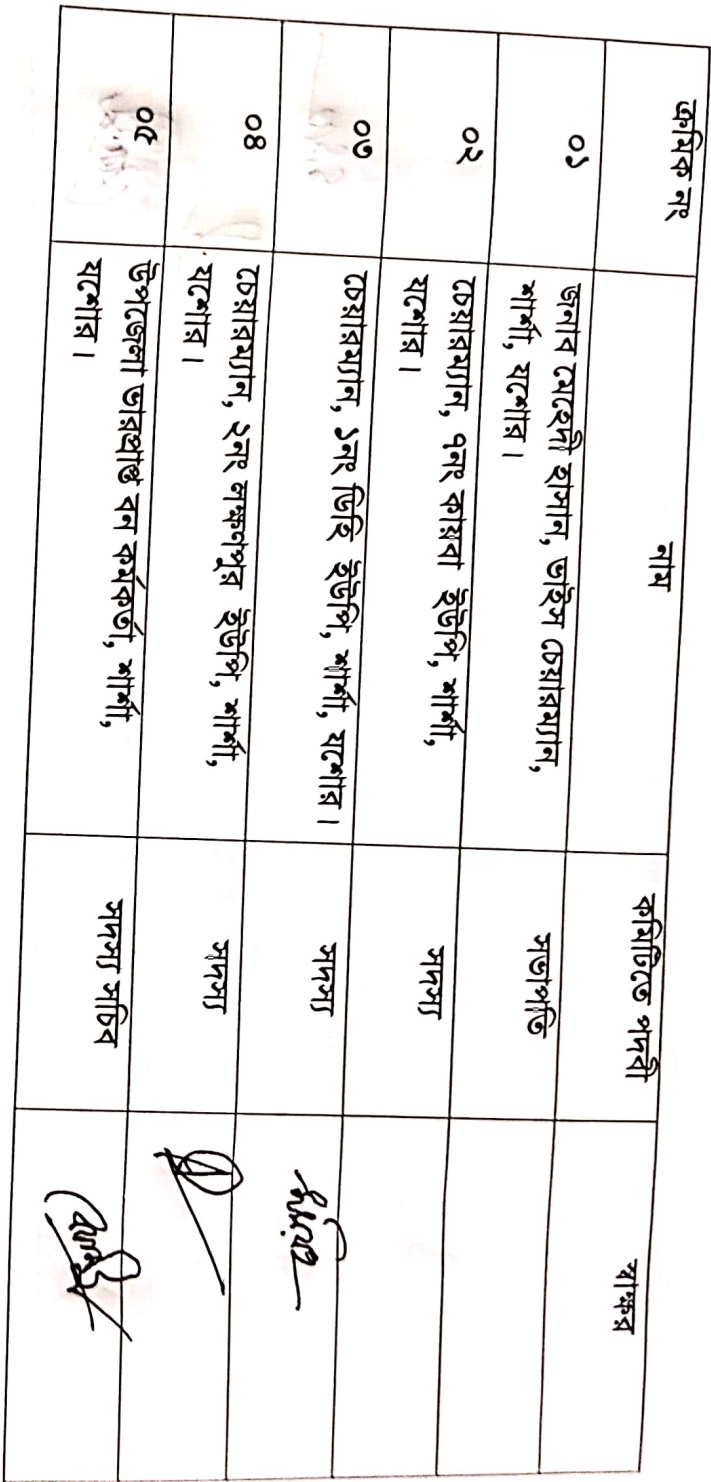 ক্রমিক নং নাম কমিটিতে পদবী স্বাক্ষর
০১ জনাব মেহেদী হাসান, ভাইস চেয়ারম্যান, সভাপতি
শার্শা, যশোর।
০২ চেয়ারম্যান, ৭নং কায়বা ইউপি, শার্শা, সদস্য
যশোর।
০৩ চেয়ারম্যান, ১নং ডিহি ইউপি, শার্শা, যশোর। সদস্য
০৪ চেয়ারম্যান, ২নং লক্ষণপুর ইউপি, শার্শা, সদস্য
যশোর।
০৫ উপজেলা ভারপ্রাপ্ত বন কর্মকর্তা, শার্শা, সদস্য সচিব
যশোর।